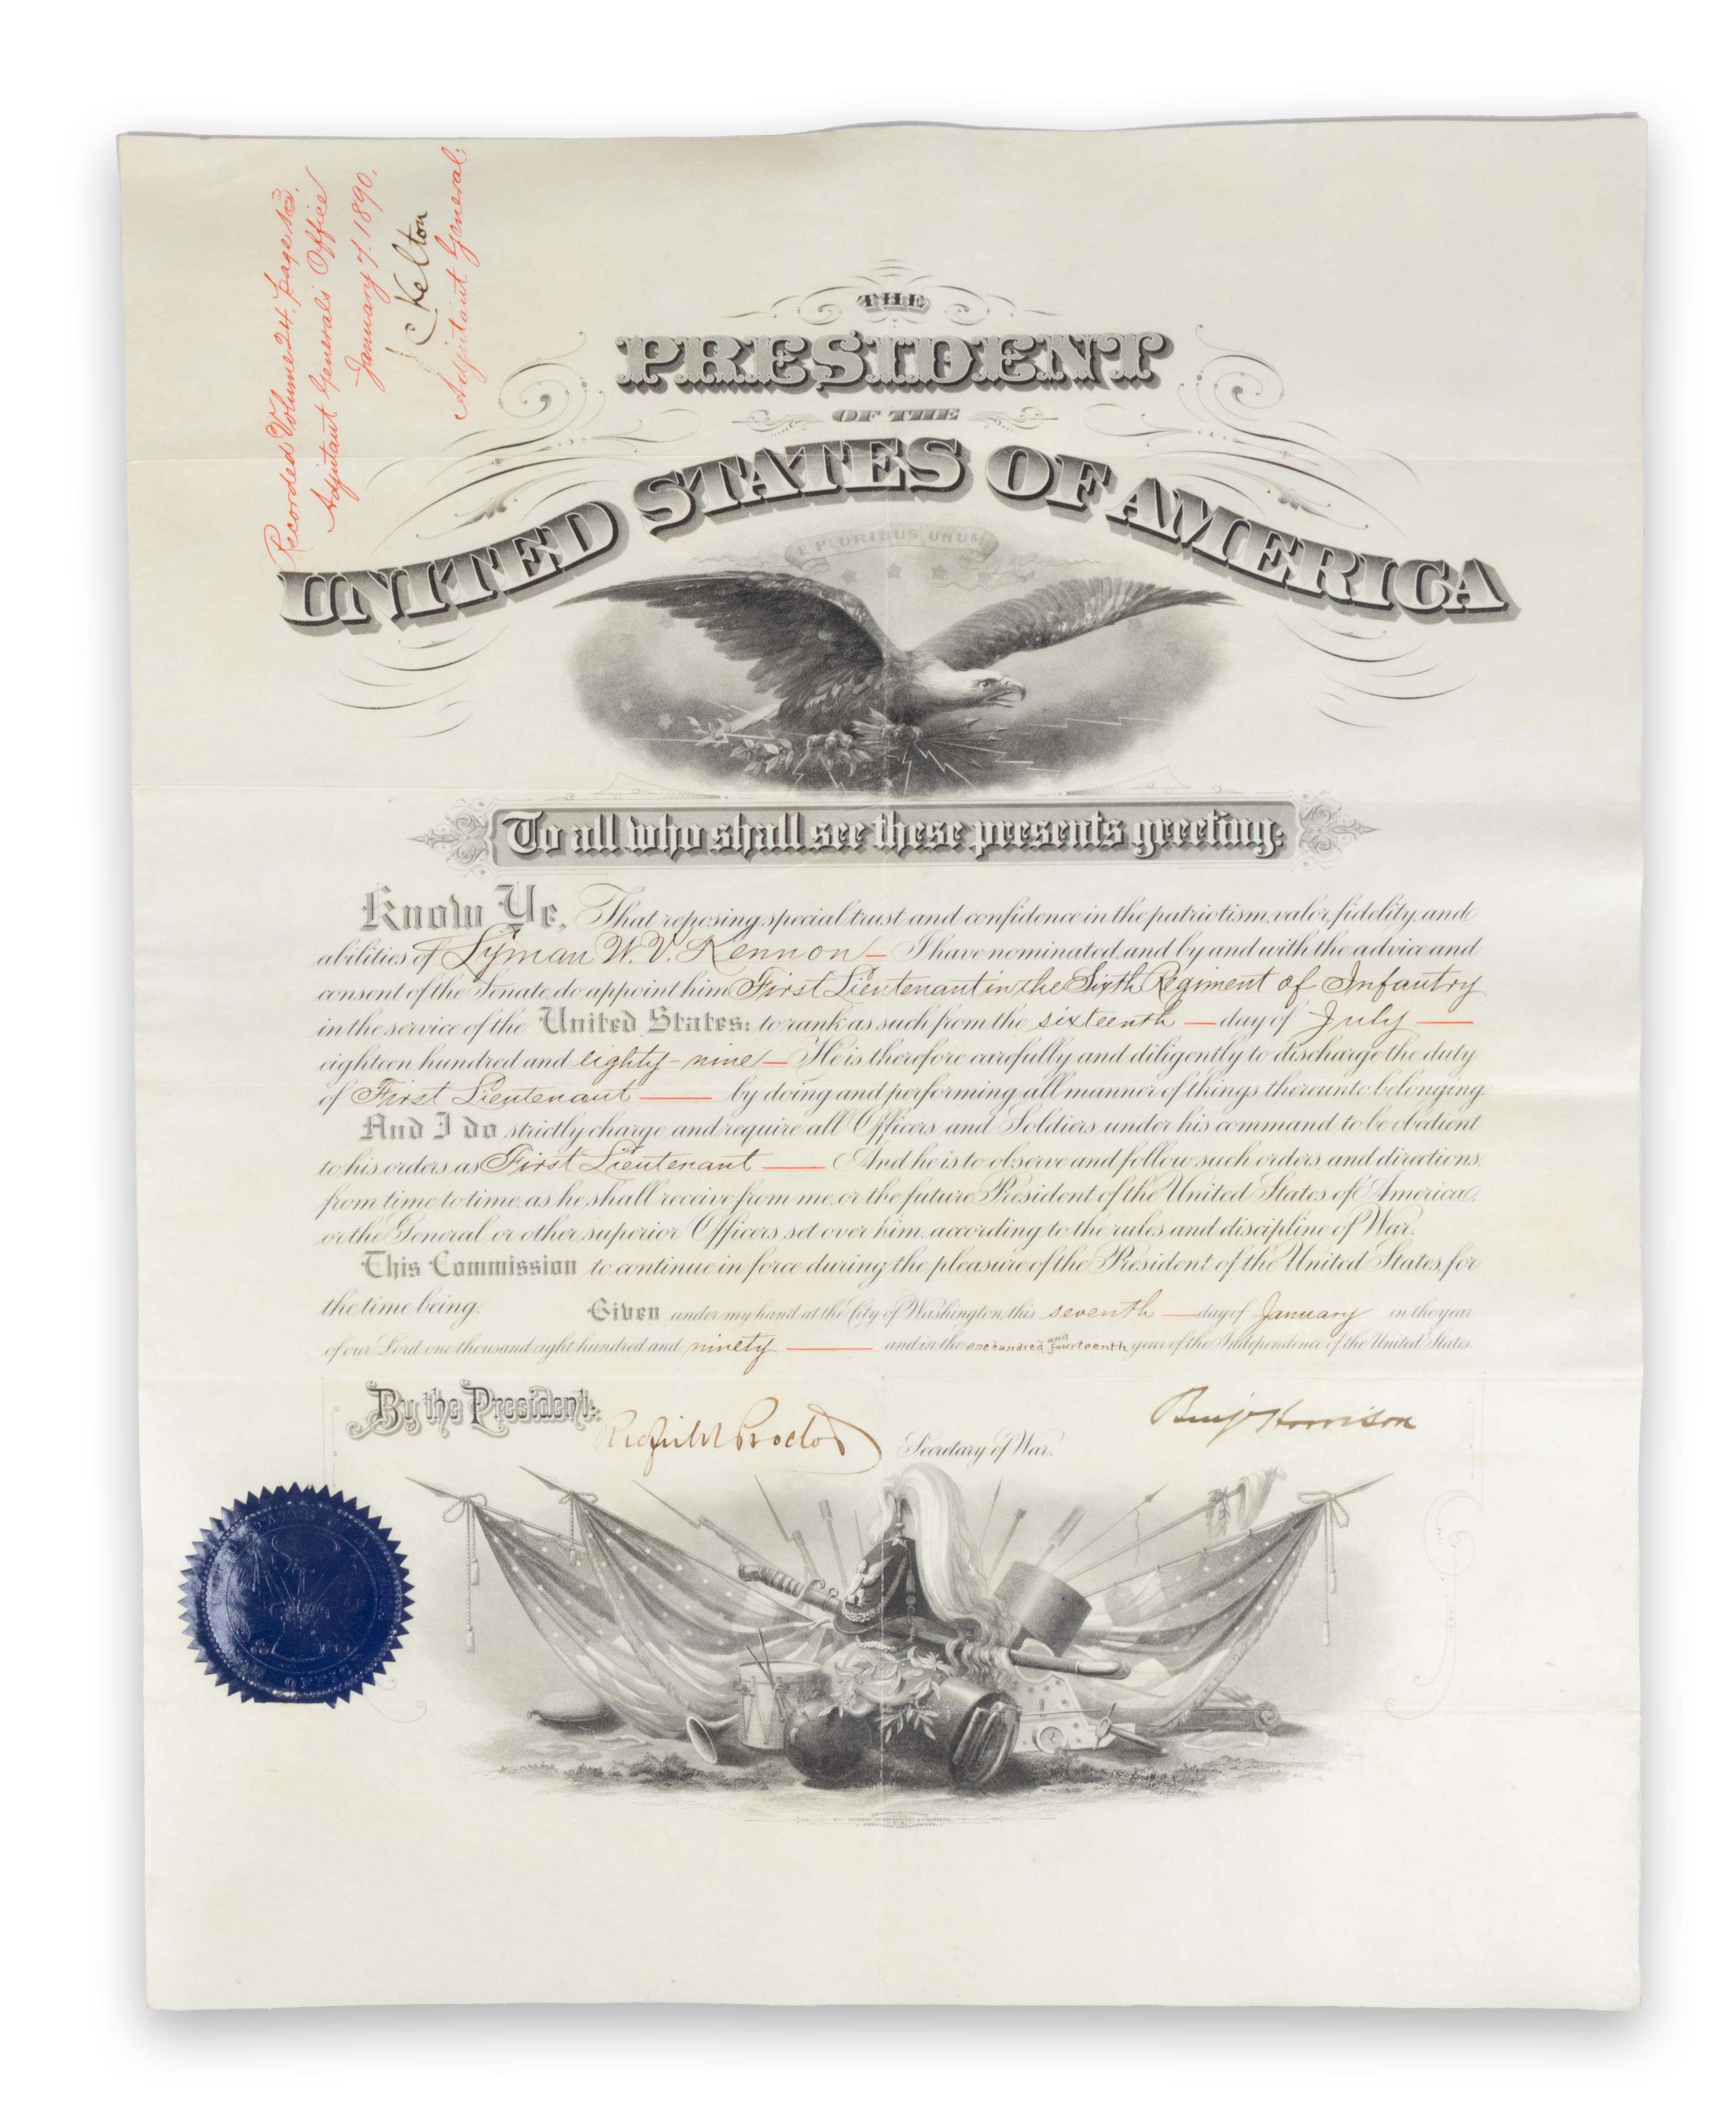 Recorded Volume 24, Page
Adjutant General's Office
January 7. 1890.
J C Kelton
Adjutant General.
THE
PRESIDENT
OF THE
UNITED STATES OF AMERICA
E PLURIBUS UNUM
To all who shall see these presents greeting:
Know Ye, That reposing special trust and confidence in the patriotism, valor, fidelity, and
abilities of Lyman W. V. Kennon — I have nominated, and by and with the advice and
consent of the Senate, do appoint him First Lieutenant in the Sixth Regiment of Infantry
in the service of the United States: to rank as such from the sixteenth — day of July —
eighteen hundred and eighty-nine — He is therefore carefully and diligently to discharge the duty
of First Lieutenant — by doing and performing all manner of things thereunto belonging.
And I do strictly charge and require all Officers and Soldiers under his command to be obedient
to his orders as First Lieutenant — And he is to observe and follow such orders and directions,
from time to time, as he shall receive from me, or the future President of the United States of America,
or the General or other superior Officers set over him, according to the rules and discipline of War.
This Commission to continue in force during the pleasure of the President of the United States, for
the time being. Given under my hand at the City of Washington, this seventh — day of January in the year
of our Lord one thousand eight hundred and ninety — and in the one hundred and fourteenth year of the Independence of the United States.
By the President:
Benj Harrison
Redfield Proctor Secretary of War.